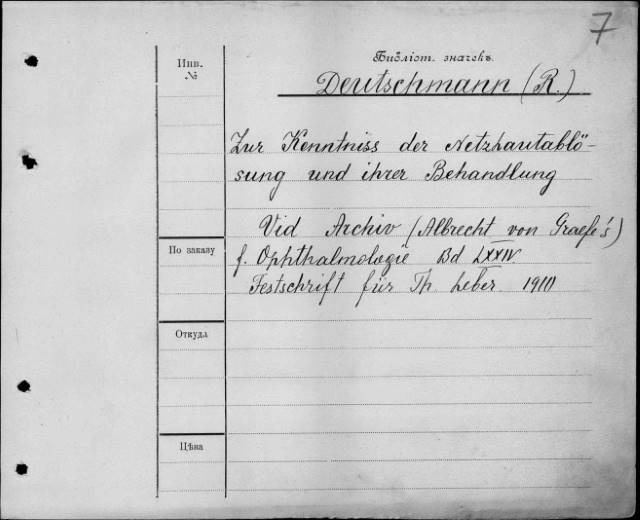 7
Инв.
№
Библіот. значекъ
Deutschmann (R.)
Zur Kenntniss der Netzhautablö-
sung und ihrer Behandlung
Vid Archiv (Albrecht von Graefe's)
По заказу
f. Ophthalmologie Bd LXXIV
Festschrift für Th. Leber 1910
Откуда
Цѣна